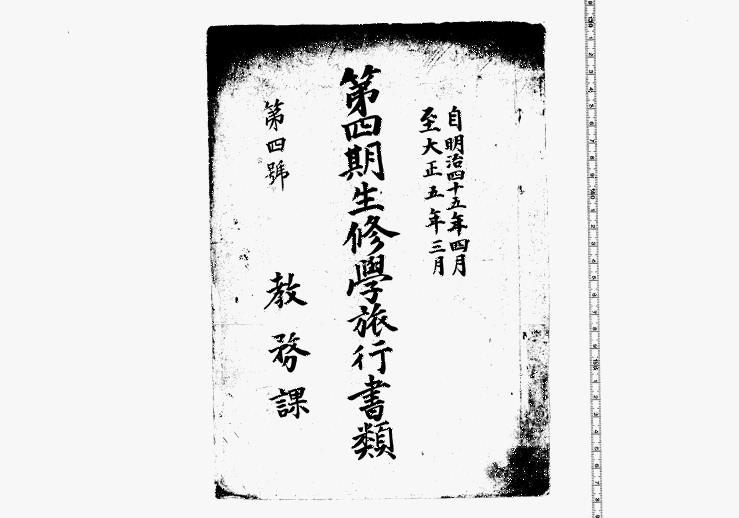 自明治四十五年四月
至大正五年三月
第四期生修學旅行書類
第四號
教務課